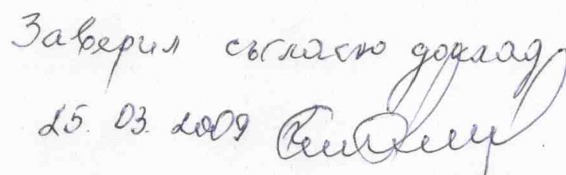 Заверил съгласно доклад
25.03.2009